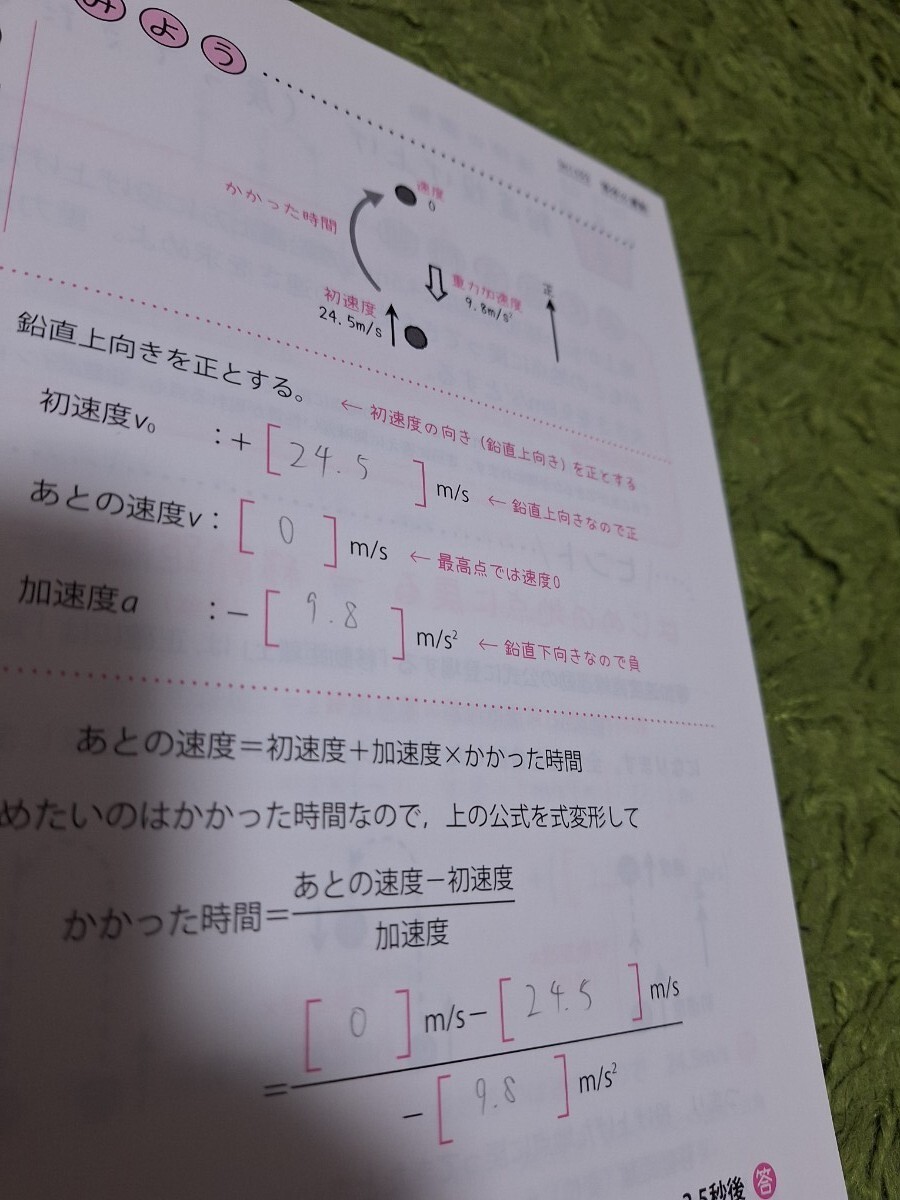 みよう
速度
0
かかった時間
重力加速度
9.8m/s²
正
初速度
24.5m/s
鉛直上向きを正とする。
← 初速度の向き（鉛直上向き）を正とする
初速度v₀ ：＋[24.5]m/s ← 鉛直上向きなので正
あとの速度v：[0]m/s ← 最高点では速度0
加速度a ：－[9.8]m/s² ← 鉛直下向きなので負
あとの速度＝初速度＋加速度×かかった時間
めたいのはかかった時間なので，上の公式を式変形して
あとの速度－初速度
かかった時間＝
加速度
[0]m/s－[24.5]m/s
＝
－[9.8]m/s²
2.5秒後 答